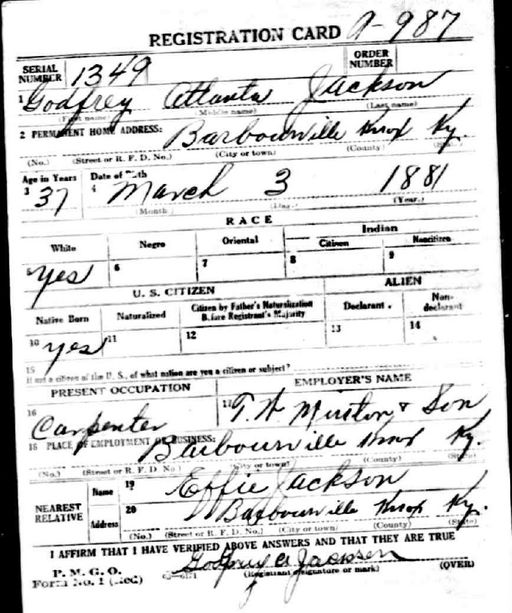 REGISTRATION CARD A-987
SERIAL NUMBER 1349 ORDER NUMBER
1 Godfrey Atlanta Jackson
(First name) (Middle name) (Last name)
2 PERMANENT HOME ADDRESS: Barbourville Knox Ky.
(No.) (Street or R. F. D. No.) (City or town) (County) (State)
Age in Years Date of Birth
3 37 4 March 3 1881
(Month) (Day) (Year)
RACE
White Negro Oriental Indian
Citizen Noncitizen
5 Yes 6 7 8 9
U. S. CITIZEN ALIEN
Native Born Naturalized Citizen by Father's Naturalization Before Registrant's Majority Declarant Non-declarant
10 yes 11 12 13 14
15 If not a citizen of the U. S., of what nation are you a citizen or subject?
PRESENT OCCUPATION EMPLOYER'S NAME
16 Carpenter 17 T. W. & Son
18 PLACE OF EMPLOYMENT OR BUSINESS: Barbourville Knox Ky.
(No.) (Street or R. F. D. No.) (City or town) (County) (State)
NEAREST RELATIVE Name 19 Effie Jackson
Address 20 Barbourville Knox Ky.
(No.) (Street or R. F. D. No.) (City or town) (County) (State)
I AFFIRM THAT I HAVE VERIFIED ABOVE ANSWERS AND THAT THEY ARE TRUE
P. M. G. O.
Form No. 1 (Red) Godfrey A Jackson
(Registrant's signature or mark) (OVER)